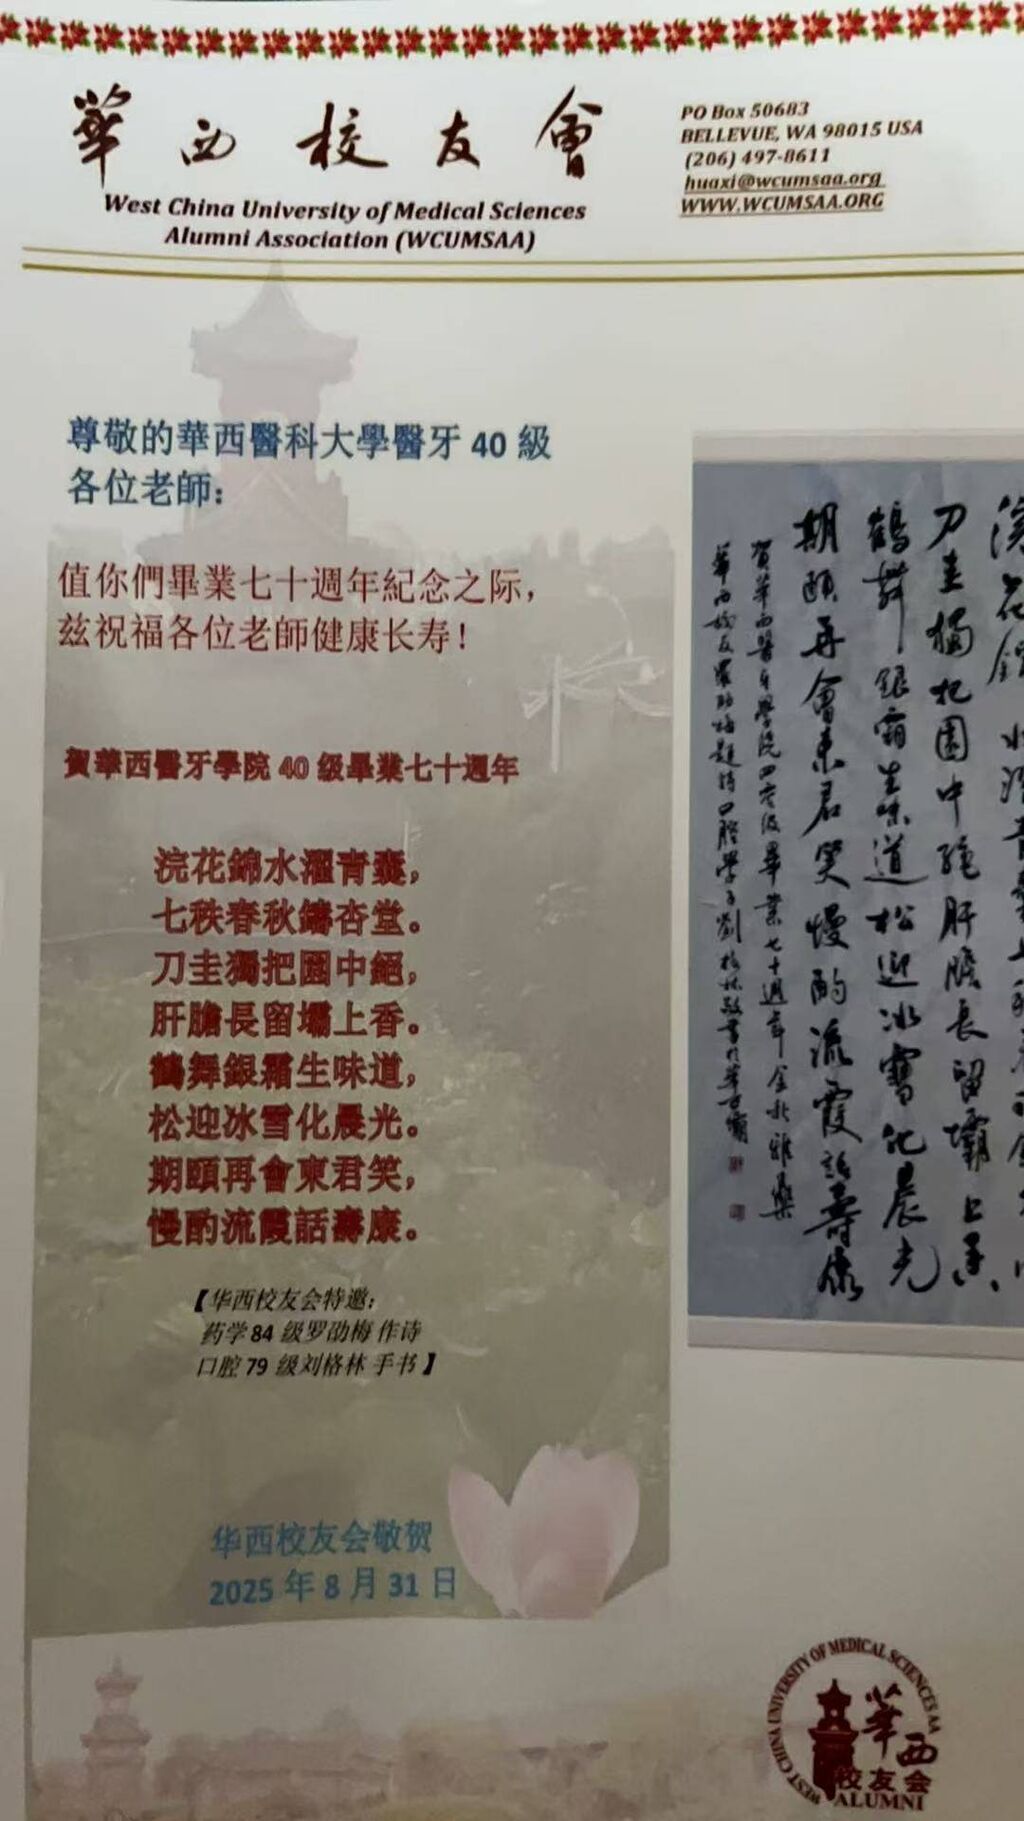 華西校友會
West China University of Medical Sciences
Alumni Association (WCUMSAA)
PO Box 50683
BELLEVUE, WA 98015 USA
(206) 497-8611
huaxi@wcumsaa.org
WWW.WCUMSAA.ORG
尊敬的華西醫科大學醫牙 40 級
各位老師:
值你們畢業七十週年紀念之际,
兹祝福各位老師健康长寿!
賀華西醫牙學院 40 级畢業七十週年
浣花錦水濯青囊,
七秩春秋鑄杏堂。
刀圭獨把圓中絕,
肝膽長留壩上香。
鶴舞銀霜生味道,
松迎冰雪化晨光。
期頤再會東君笑,
慢酌流霞話壽康。
【华西校友会特邀:
药学 84 级罗劭梅 作诗
口腔 79 级刘格林 手书】
华西校友会敬贺
2025 年 8 月 31 日
浣花錦水濯青囊
刀圭獨把園中絕肝膽長留壩上香
鶴舞銀霜生味道松迎冰雪化晨光
期頤再會東君笑慢酌流霞話壽康
賀華西醫牙學院四零级畢業七十週年
WEST CHINA UNIVERSITY OF MEDICAL SCIENCES AA
華西
校友会
ALUMNI